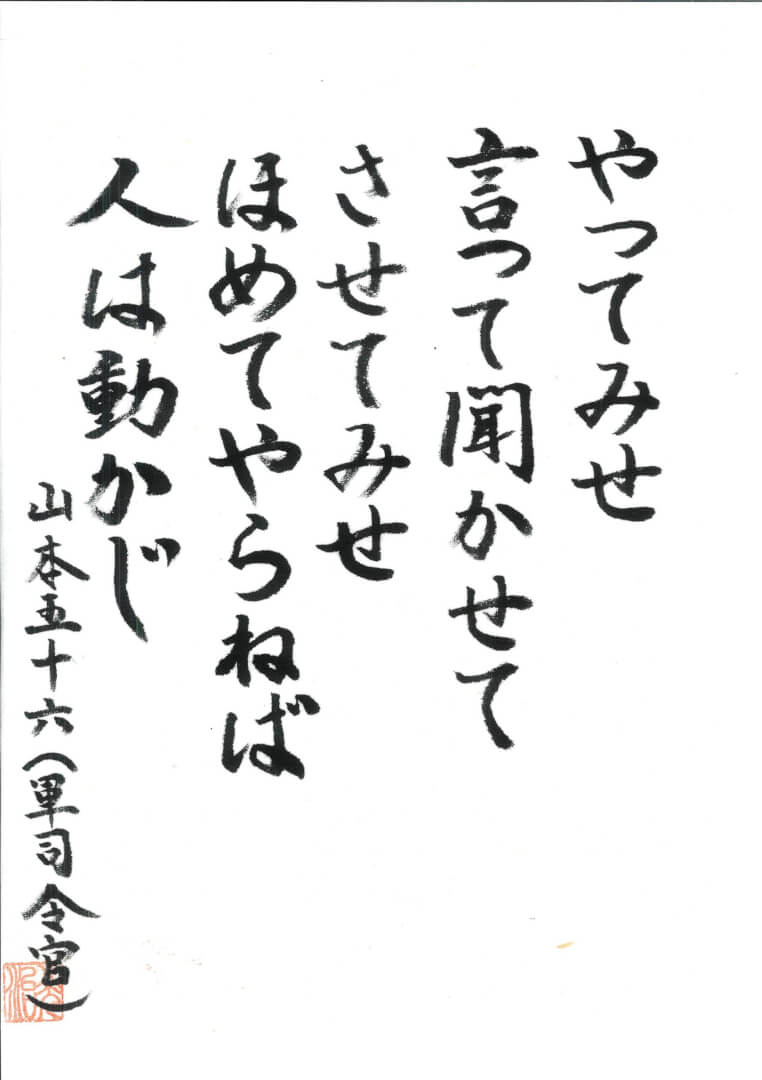 やってみせ
言って聞かせて
させてみせ
ほめてやらねば
人は動かじ
山本五十六（軍司令官）